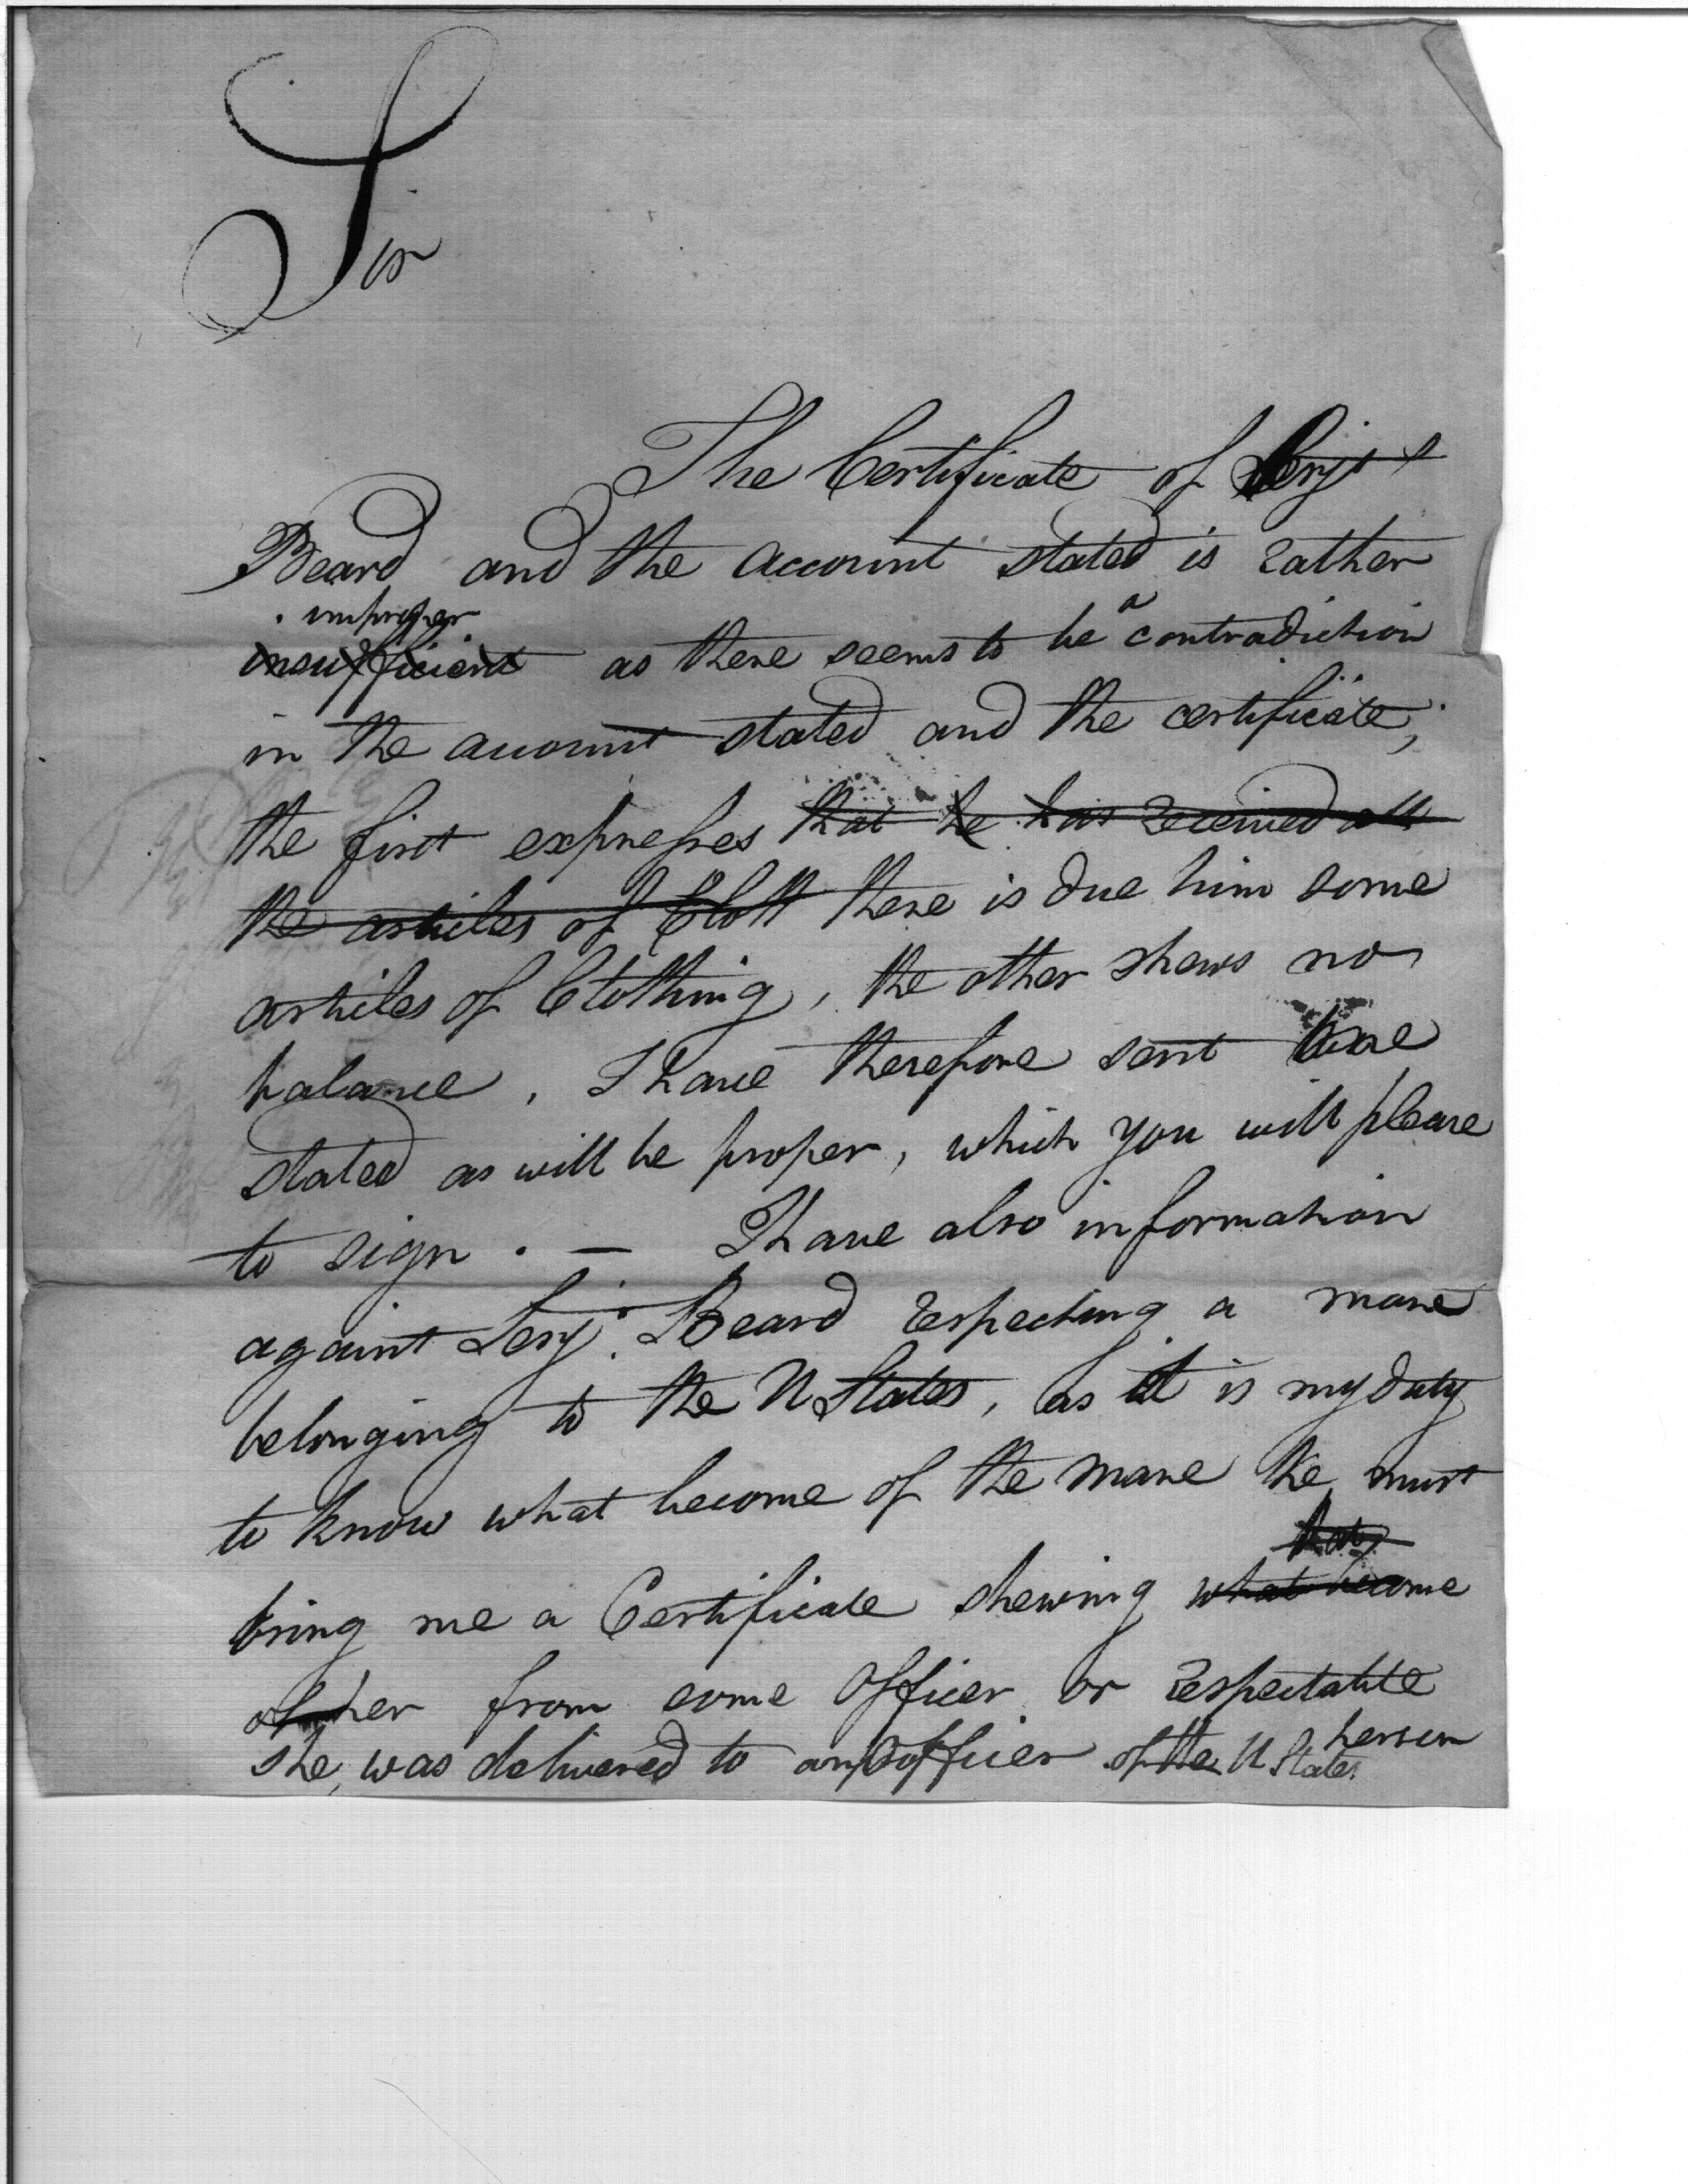 Sir
The Certificate of Serjt
Beard and the account stated is rather
improper
insufficient as there seems to be a contradiction
in the account stated and the certificate,
the first expresses that he has received all
the articles of Cloth there is due him some
articles of Clothing, the other shews no
balance, I have therefore sent one
stated as will be proper, which you will please
to sign. — I have also information
against Serjt. Beard respecting a mare
belonging to the U States, as it is my duty
to know what become of the mare he must
that
bring me a Certificate shewing what become
of her from some officer or respectable
person
she was delivered to an officer of the U States